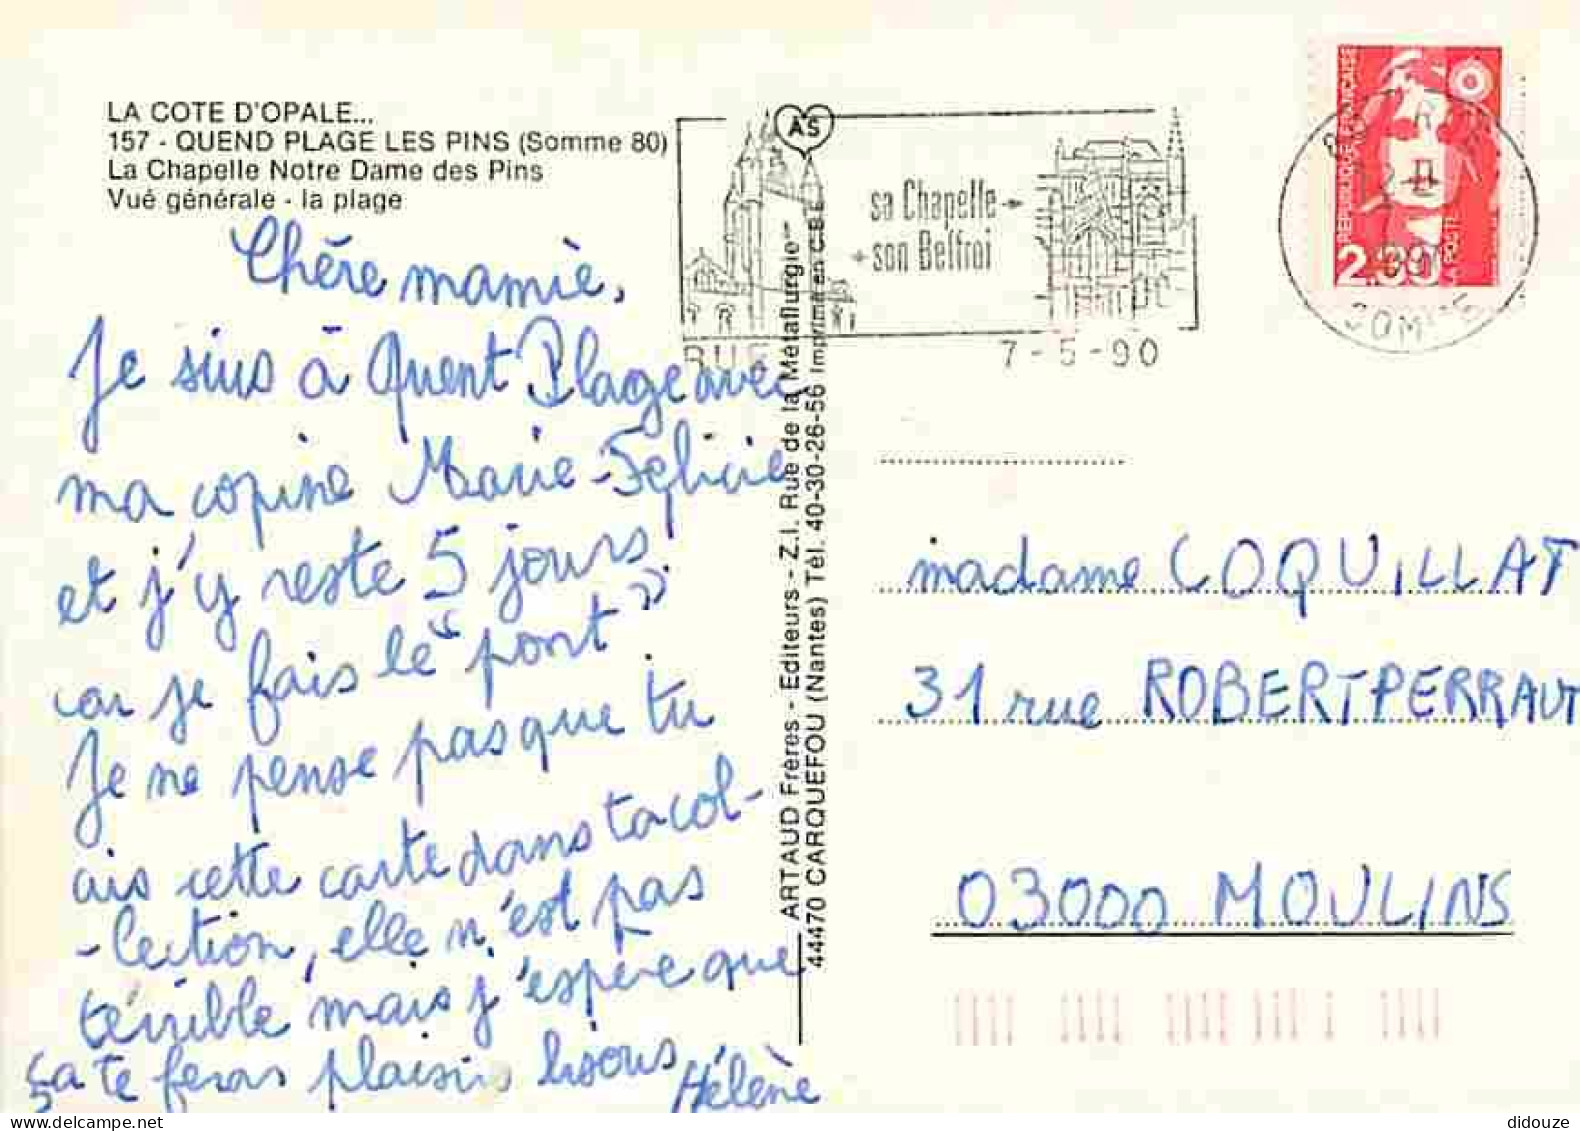 LA COTE D'OPALE...
157 - QUEND PLAGE LES PINS (Somme 80)
La Chapelle Notre Dame des Pins
Vué générale - la plage
Chère mamie,
Je suis à Quent Plage avec
ma copine Marie-Félicie
et j'y reste 5 jours
car je fais le "pont"
Je ne pense pas que tu
ais cette carte dans ta col-
-lection, elle n'est pas
terrible mais j'espère que
ça te feras plaisir bisous
Hélène
AS
sa Chapelle
son Beffroi
RUE
7-5-90
REPUBLIQUE FRANÇAISE
2.30
LA POSTE
SOMME
ARTAUD Frères - Editeurs - Z.I. Rue de la Métallurgie
44470 CARQUEFOU (Nantes) Tél. 40-30-26-56 Imprimé en C.E.E.
madame COQUILLAT
31 rue ROBERT PERRAUT
03000 MOULINS
didouze